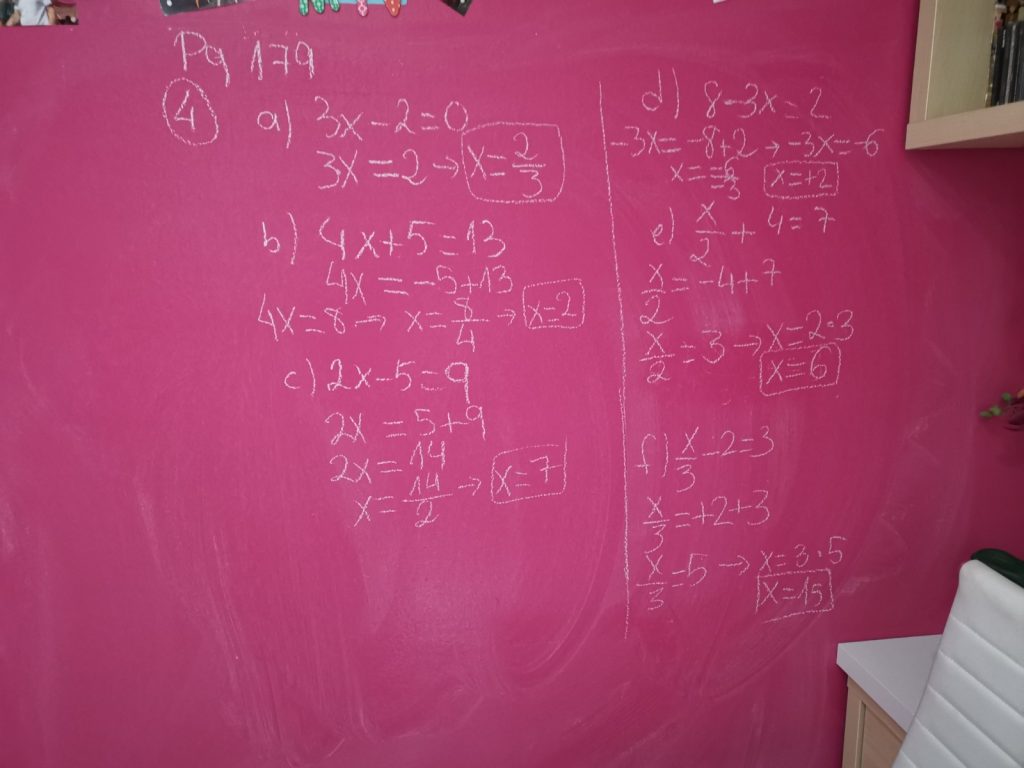 Pg 179
4 a) 3x-2=0
3x=2 → x=2/3
b) 4x+5=13
4x=-5+13
4x=8 → x=8/4 → x=2
c) 2x-5=9
2x=5+9
2x=14
x=14/2 → x=7
d) 8-3x=2
-3x=-8+2 → -3x=-6
x=-6/-3 x=+2
e) x/2+4=7
x/2=-4+7
x/2=3 → x=2·3
x=6
f) x/3-2=3
x/3=+2+3
x/3-5 → x=3·5
x=15